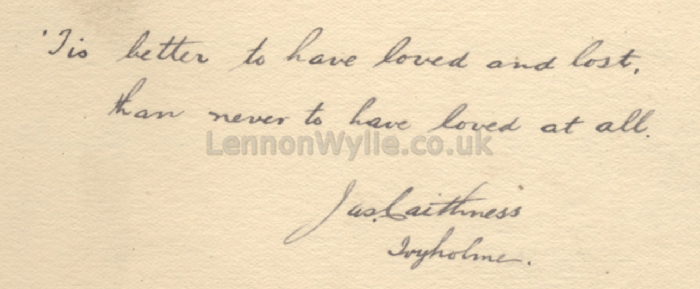 'Tis better to have loved and lost,
than never to have loved at all.
LennonWylie.co.uk
Jas. Caithness
Ivyholme.